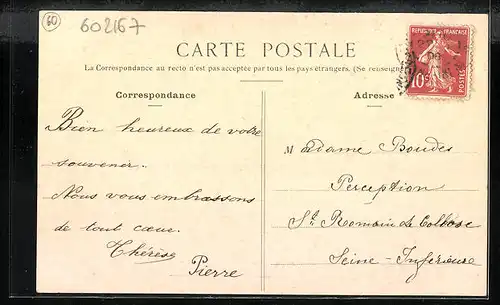 60
602167
CARTE POSTALE
La Correspondance au recto n'est pas acceptée par tous les pays étrangers. (Se renseigner
REPUBLIQUE FRANÇAISE
10c
POSTES
Correspondance
Adresse
Bien heureux de votre
souvenir.
Nous vous embrassons
de tout cœur.
Thérèse
Pierre
Madame Boudes
Perception
St Romain de Colbosc
Seine-Inférieure